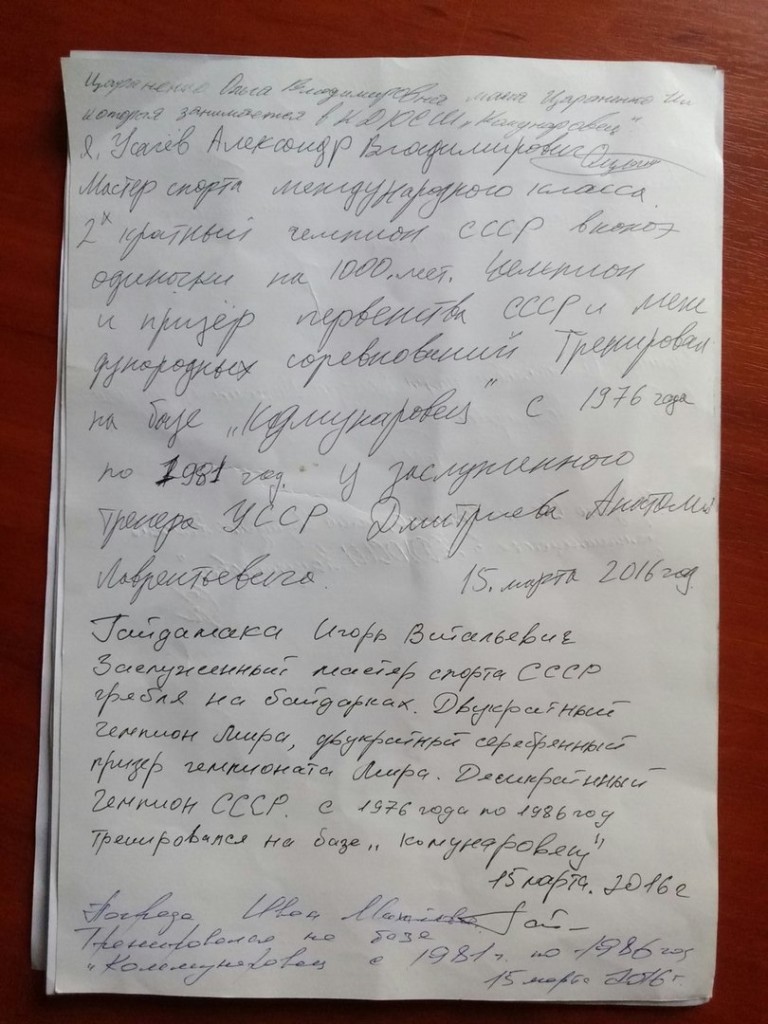 Ольга Владимировна мама
занимается в КДЮСШ „Комунаровец"
Я, Усачёв Александр Владимирович
Мастер спорта международного класса.
2х кратный чемпион СССР в каноэ
одиночки на 1000.мет. Чемпион
и призёр первенства СССР и меж
дународных соревнований Тренировал
на базе „Коммунаровец" с 1976 года
по 1981 год. у заслуженного
тренера УССР Дмитриева Анатолия
Лаврентьевича. 15. марта 2016 год.
Гайдамака Игорь Витальевич
Заслуженный мастер спорта СССР
гребля на байдарках. Двукратный
чемпион Мира, двукратный серебренный
призер чемпионата Мира. Десикратнный
Чемпион СССР. с 1976 года по 1986 год
тренировался на базе „комунаровец"
15 марта. 2016 г
Иван
Тренировался на базе
"Коммунаровец с 1981 г. по 1986 год
15 марта 2016 г.